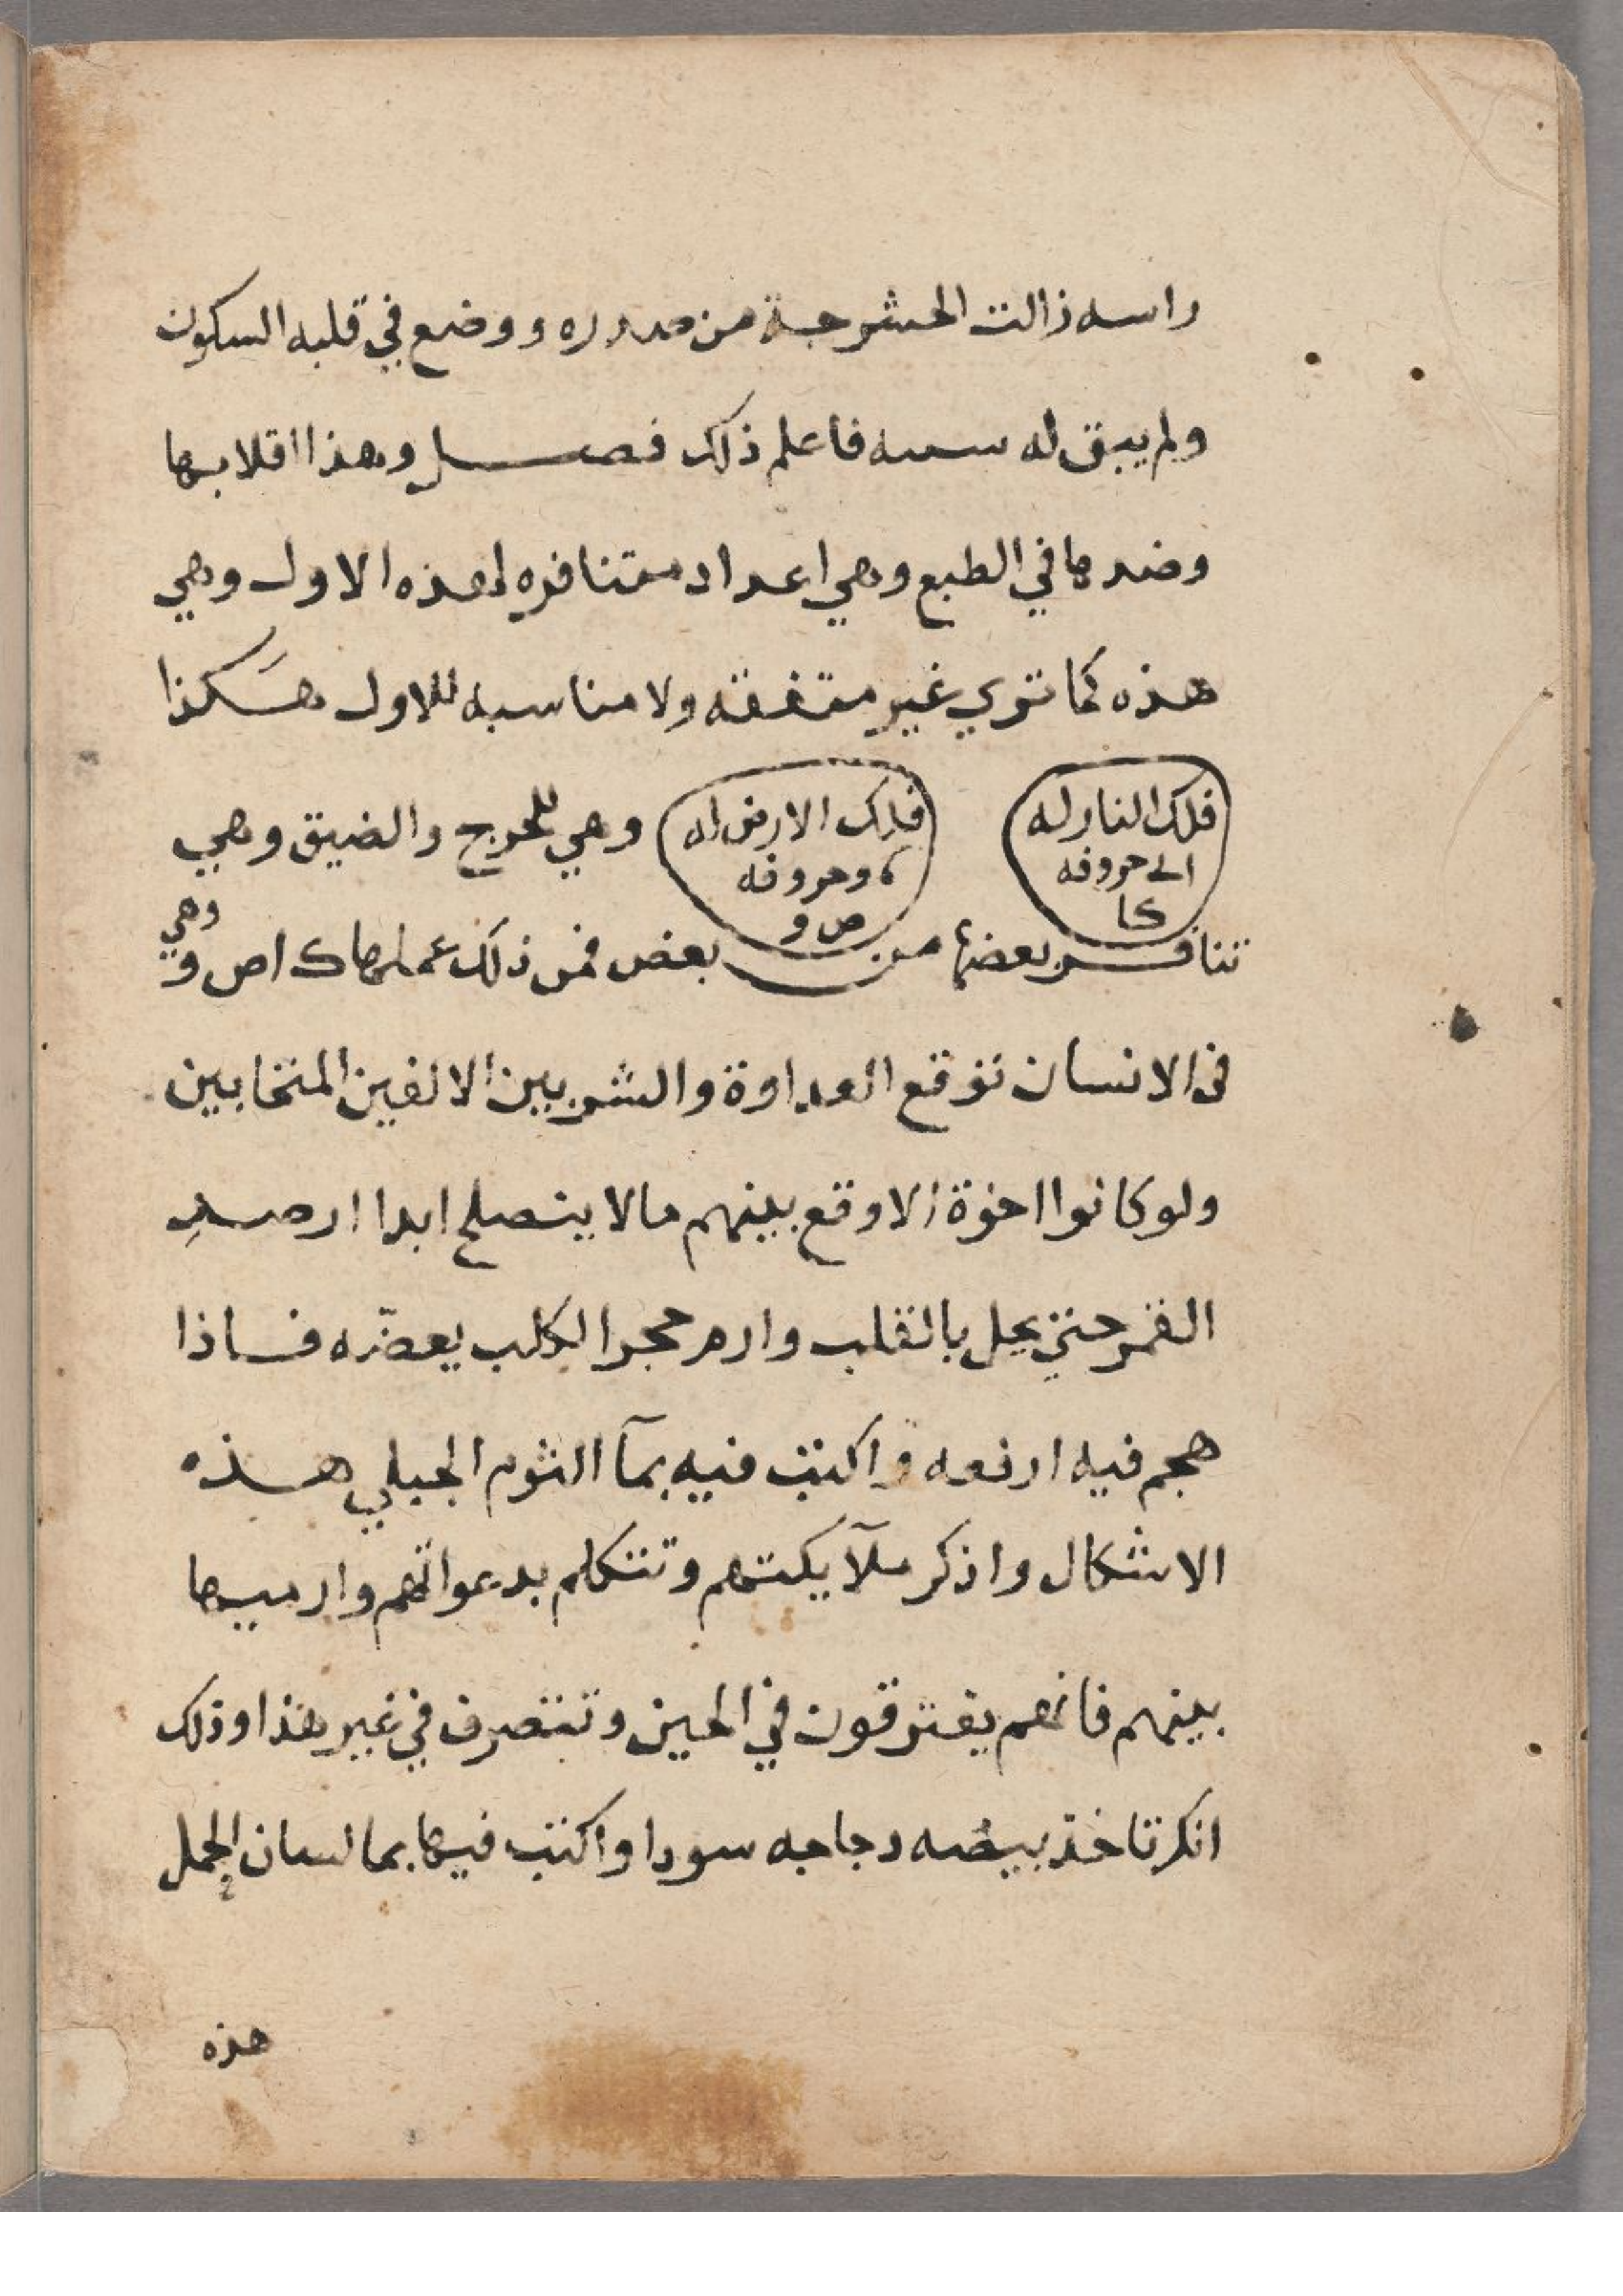 راسه زالت الحشرجة من صدره ووضع في قلبه السكون
ولم يبق له فاعلم ذلك فصل وهذا اقلابها
وضدها في الطبع وهي اعداد متنافره لهذه الاول وهي
هذه كما تري غير متفقه ولا مناسبه للاول هكذا
فلك النار له
الى حروفه
كا
فلك الارض له
وحروفه
ص و
وهي للحرج والضيق وهي
تنافر بعضها من بعض فمن ذلك عملها ك ا ص و
وهي
في الانسان توقع العداوة والشر بين الالفين المتحابين
ولو كانوا اخوة الا وقع بينهم ما لا ينصلح ابدا ارصد
القمر حتي يحل بالقلب وارم حجرا لكلب يعضّه فاذا
هجم فيه ارفعه واكتب فيه بمآ الثوم الجبلي هذه
الاشكال واذكر ملآيكتهم وتتكلم بدعواتهم وارميها
بينهم فانهم يفترقون في الحين وتتصرف في غير هذا وذلك
انك تاخذ بيضه دجاجه سودا واكتب فيها بما لسان الحمل
هذه